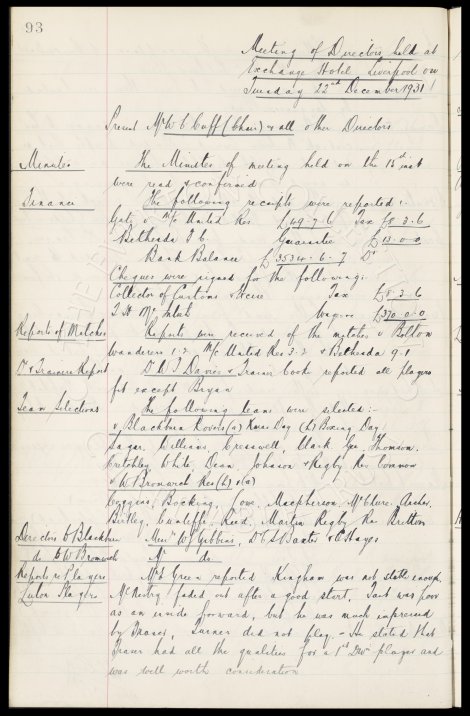 93
Meeting of Directors held at
Exchange Hotel Liverpool on
Tuesday 22nd December 1931
Present Mr W C Cuff (Chair) & all other Directors
Minutes The Minutes of meeting held on the 15th inst
were read & confirmed
Finance The following receipts were reported :-
Gate v M/c United Res £49-7-6 Tax £8-3-6
Bethesda Guarantee £15-0-0
Bank Balance £3534-6-7 Dr
Cheques were signed for the following:
Collector of Customs & Excise Tax £8-3-6
T H McIntosh Wages £370-0-0
Reports of Matches Reports were received of the matches v Bolton
Wanderers 1-2 M/c United Res 3-2 & Bethesda 9-1
Dr & Trainers Report Dr D J Davies & Trainer Cooke reported all players
fit except Bryan
Team Selections The following teams were selected :-
v Blackburn Rovers (a) Xmas Day (h) Boxing Day
Sagar, Williams, Cresswell, Clark, Gee, Thomson,
Critchley, White, Dean, Johnson & Rigby Res Cannon
v W Bromwich Res (h) & (a)
Coggins, Bocking, Lowe, Macpherson, McClure, Archer,
Birtley, Cunliffe, Reed, Martin Rigby Res Britton
Directors to Blackburn Messrs W J Gibbins, Dr C S Baxter & C Hayes
do to W Bromwich Mr do
Reports re Players Mr Green reported Kingham was not enough,
Luton Players faded out after a good start, Tait was poor
as an inside forward, but he was much impressed
by Fraser, Turner did not play. - He stated that
Fraser had all the qualities for a 1st Div player and
was well worth consideration